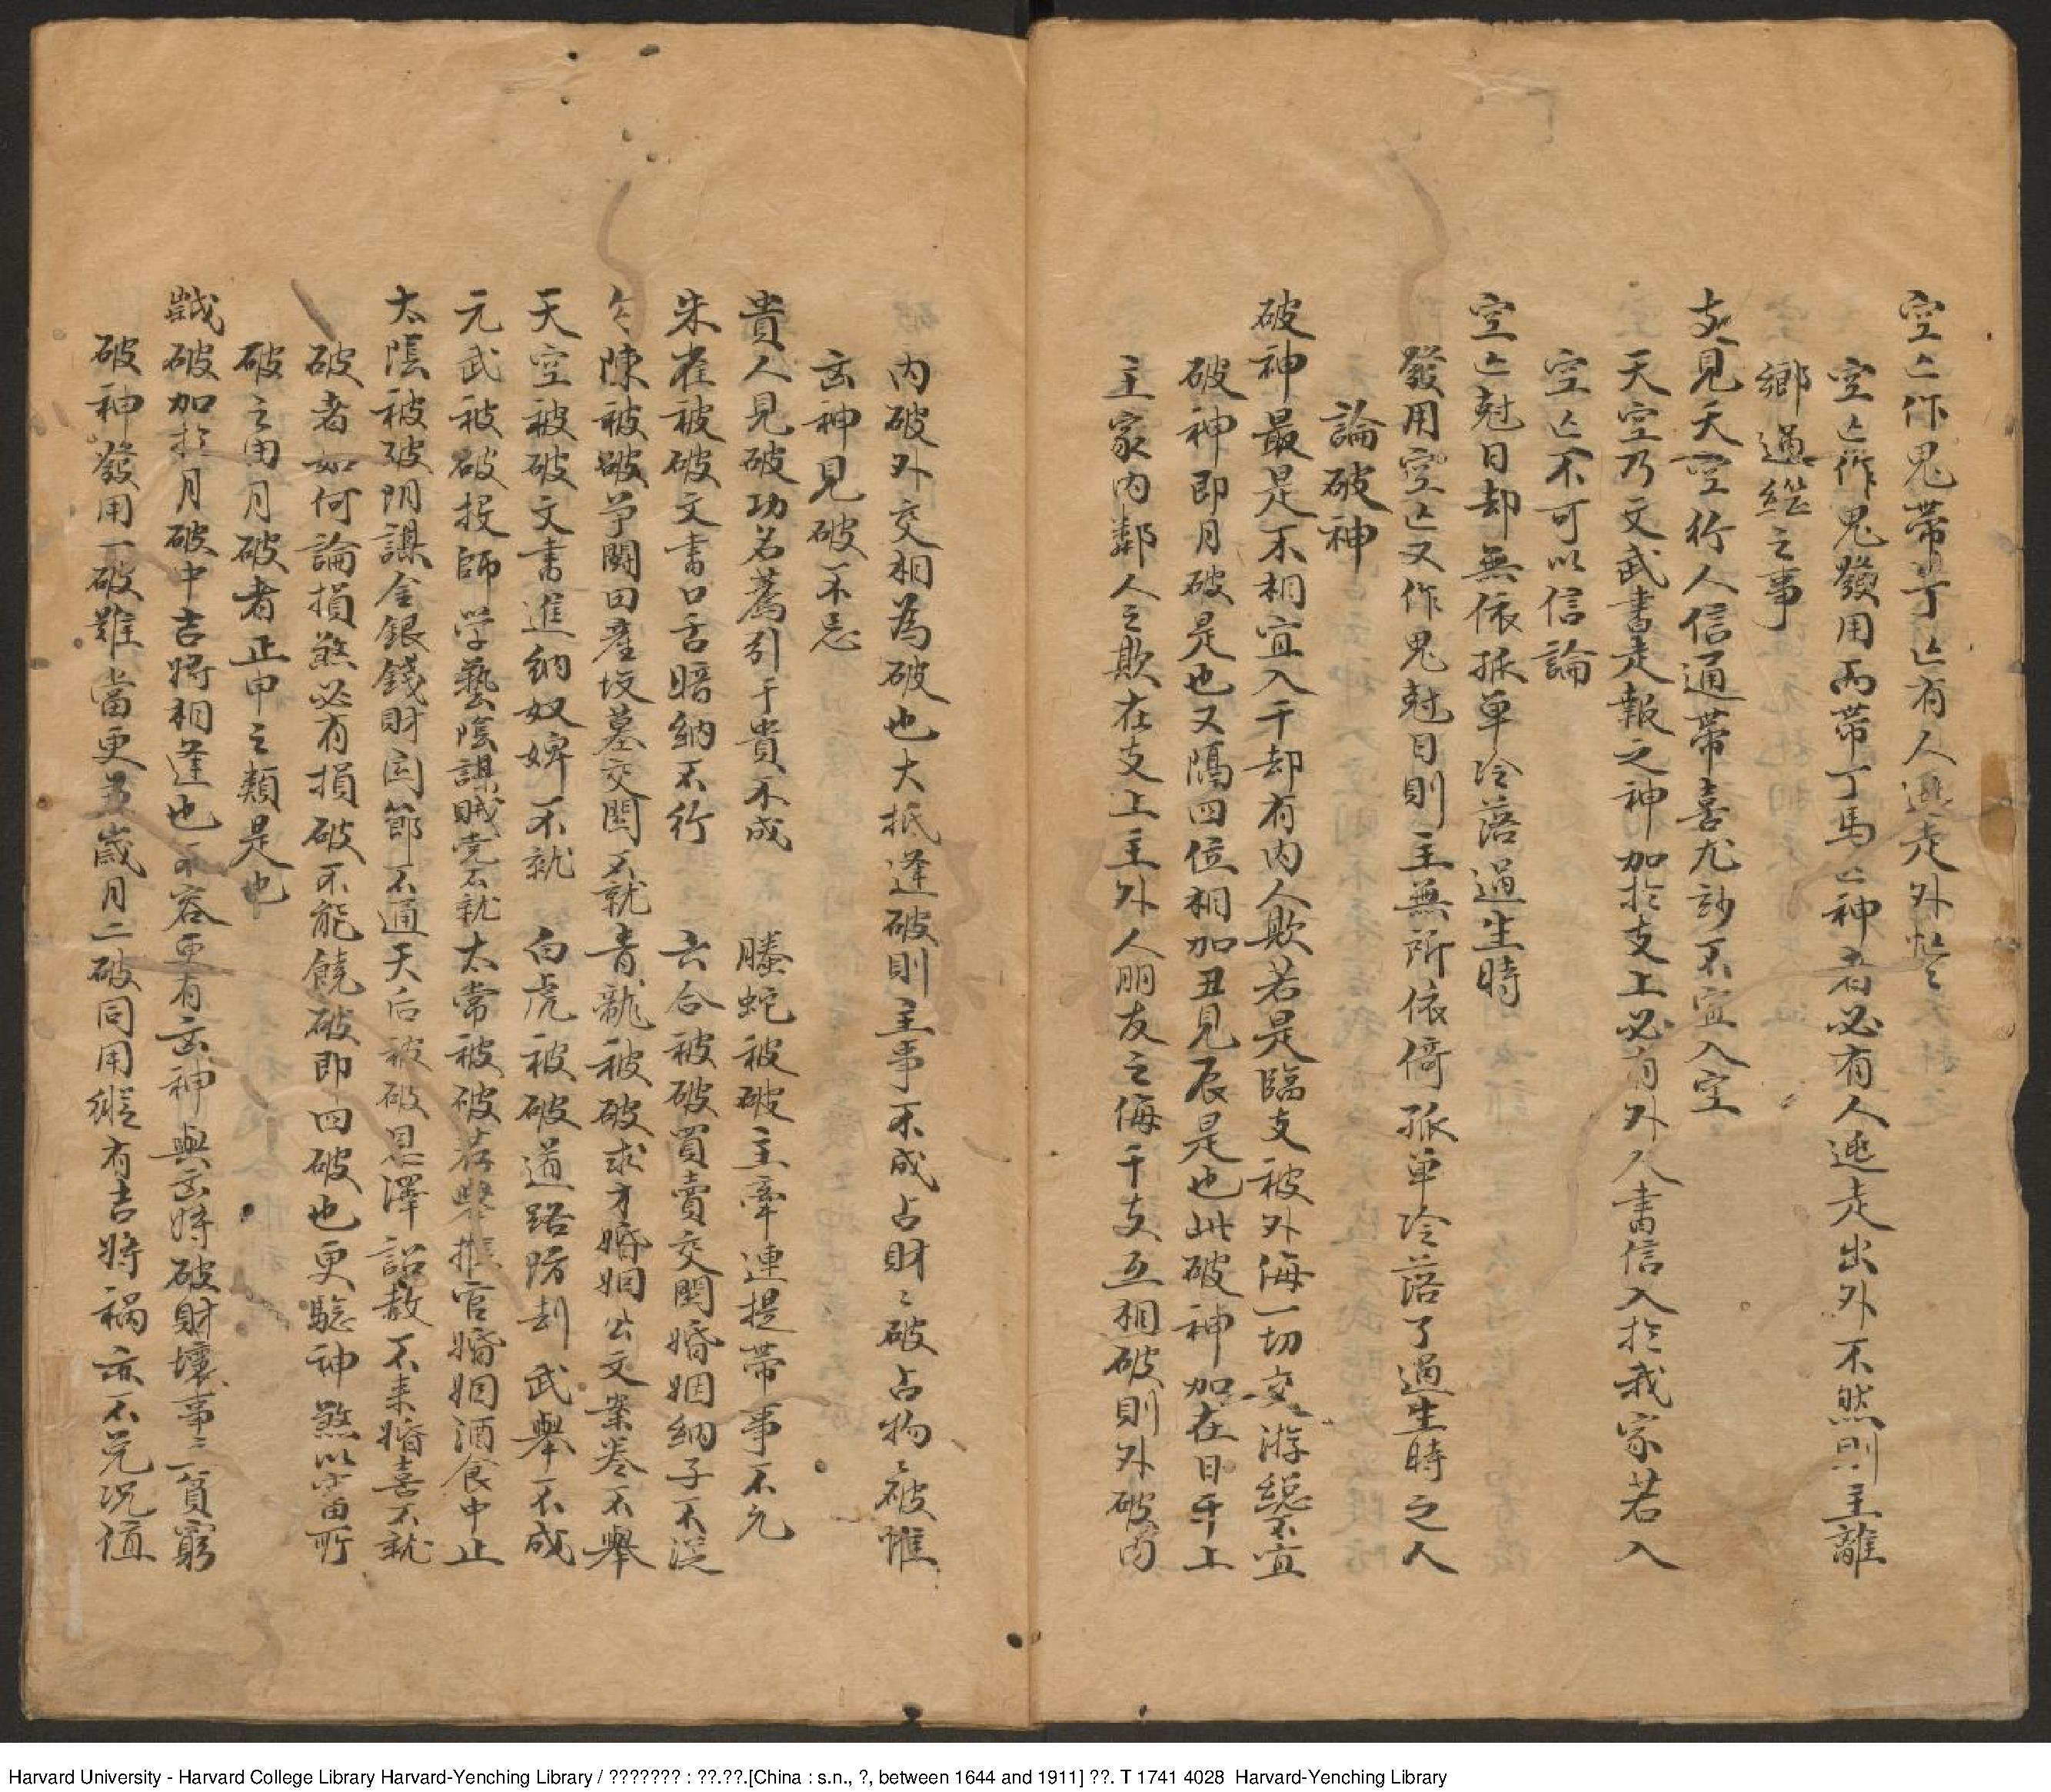 空亡作鬼帶丁亡有人逃走外
空亡作鬼發用而帶丁馬亡神者必有人逃走出外不然則主離
鄉過繼之事
支見天空行人信通帶喜尤妙不宜入空
天空乃文武書走報之神加於支上必有外人書信入於我家若入
空亡不可以信論
空亡尅日却無依孤单冷落過生時
發用空亡又作鬼尅日則主無所依倚孤单冷落了過生時之人
論破神
破神最是不相宜入干却有内人欺若是臨支被外侮一切交游總不宜
破神即月破是也又隔四位相加丑見辰是也此破神加在日干上
主家内鄰人之欺在支上主外人朋友之侮干支互相破則外破内
内破外交相為破也大抵逢破則主事不成占財〻破占物〻破惟
凶神見破不忌
貴人見破功名薦引干貴不成 螣蛇被破主牽連提帶事不允
朱雀被破文書口舌暗納不行 六合被破買賣交關婚姻納子不從
勾陳被破爭鬪田産坟墓交関不就 青龍被破求才婚姻公文案卷不舉
天空被破文書進納奴婢不就 白虎被破道路防刦武舉不成
元武被破投師学藝陰謀賊党不就 太常被破荐舉推官婚姻酒食中止
太陰被破阴謀金銀錢財関節不通 天后被破恩澤詔赦不来婚喜不就
破者如何論損煞必有損破不能饒破即四破也更騐神煞以當所
破之由月破者正申之類是也
歲破加於月破中吉將相逢也不容更有凶神與凶將破財壞事〻貧窮
破神發用一破難當更並歲月二破同用縱有吉將禍亦不免况值
Harvard University - Harvard College Library Harvard-Yenching Library / ??????? : ??.??.[China : s.n., ?, between 1644 and 1911] ??. T 1741 4028 Harvard-Yenching Library